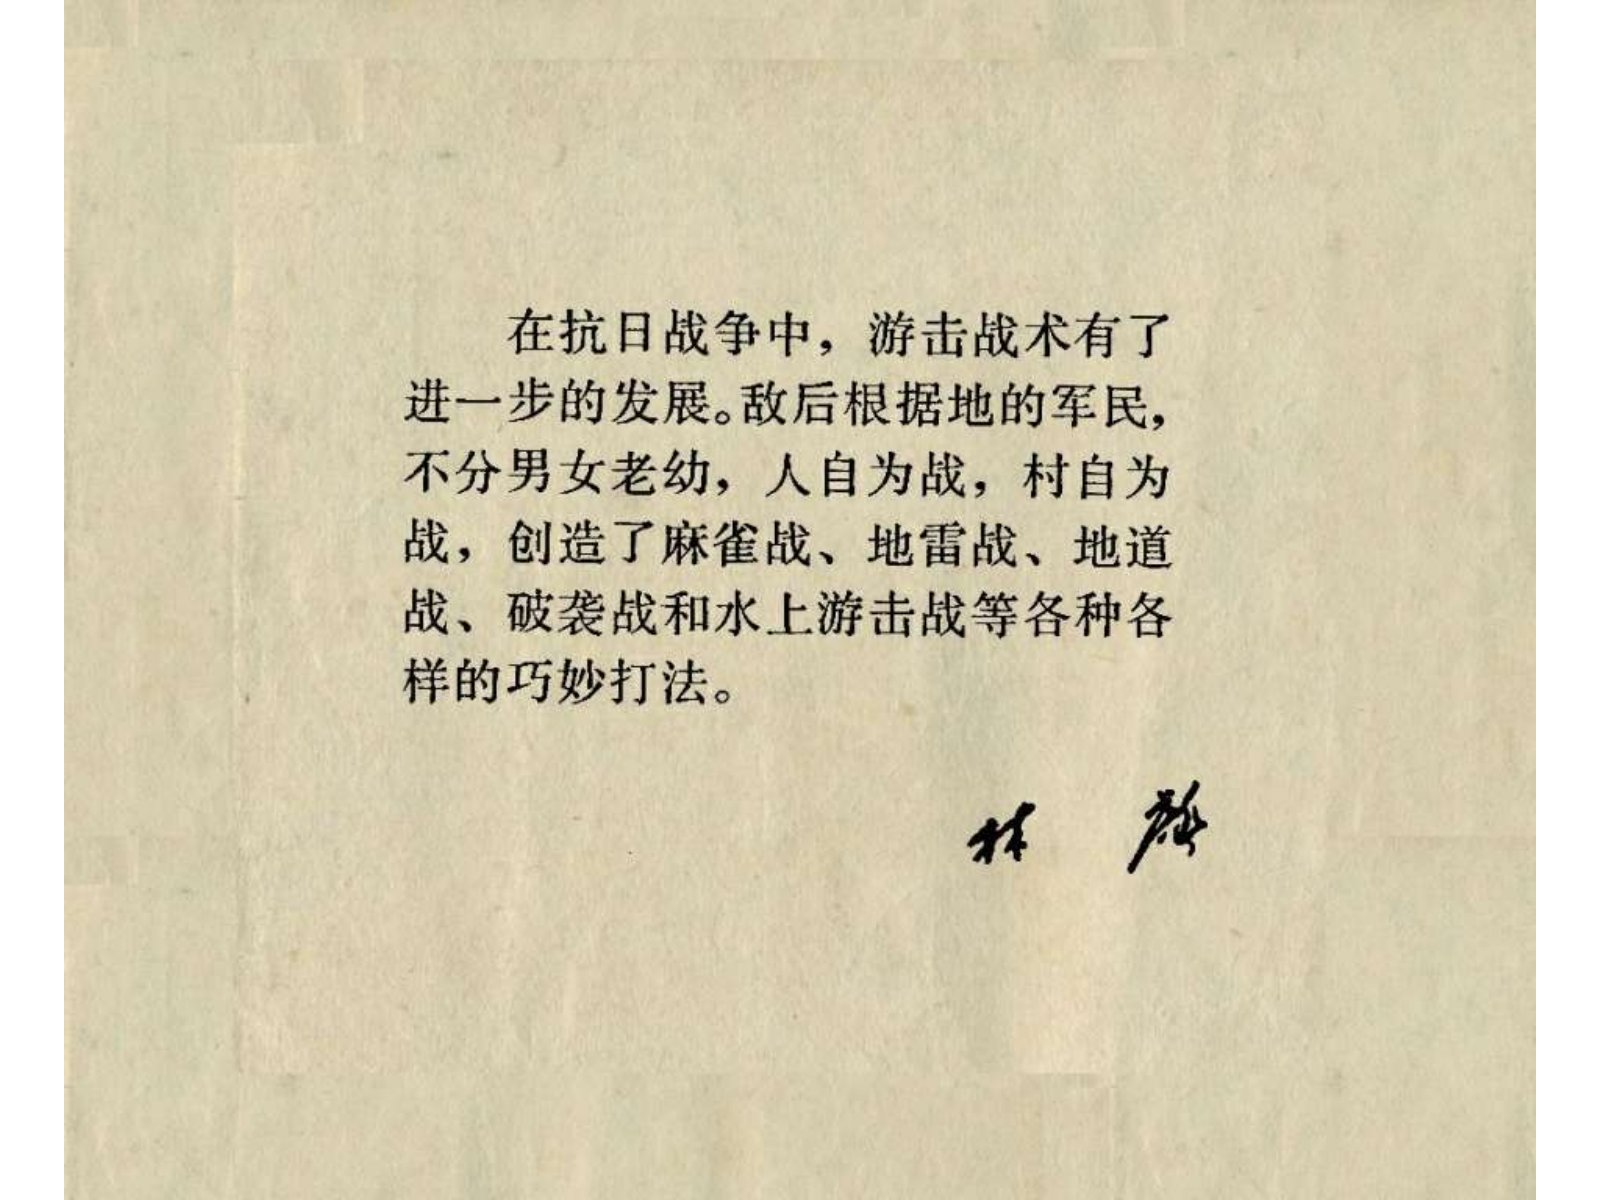 在抗日战争中，游击战术有了
进一步的发展。敌后根据地的军民，
不分男女老幼，人自为战，村自为
战，创造了麻雀战、地雷战、地道
战、破袭战和水上游击战等各种各
样的巧妙打法。
林